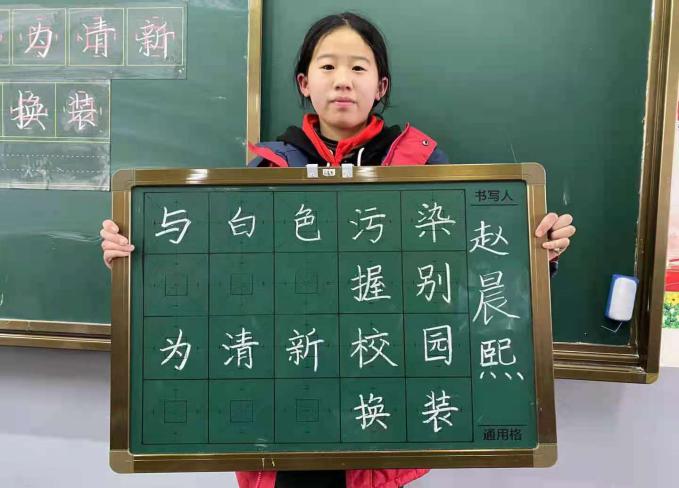 为清新
换装
与白色污染
握别
为清新校园
换装
书写人
赵晨熙
通用格